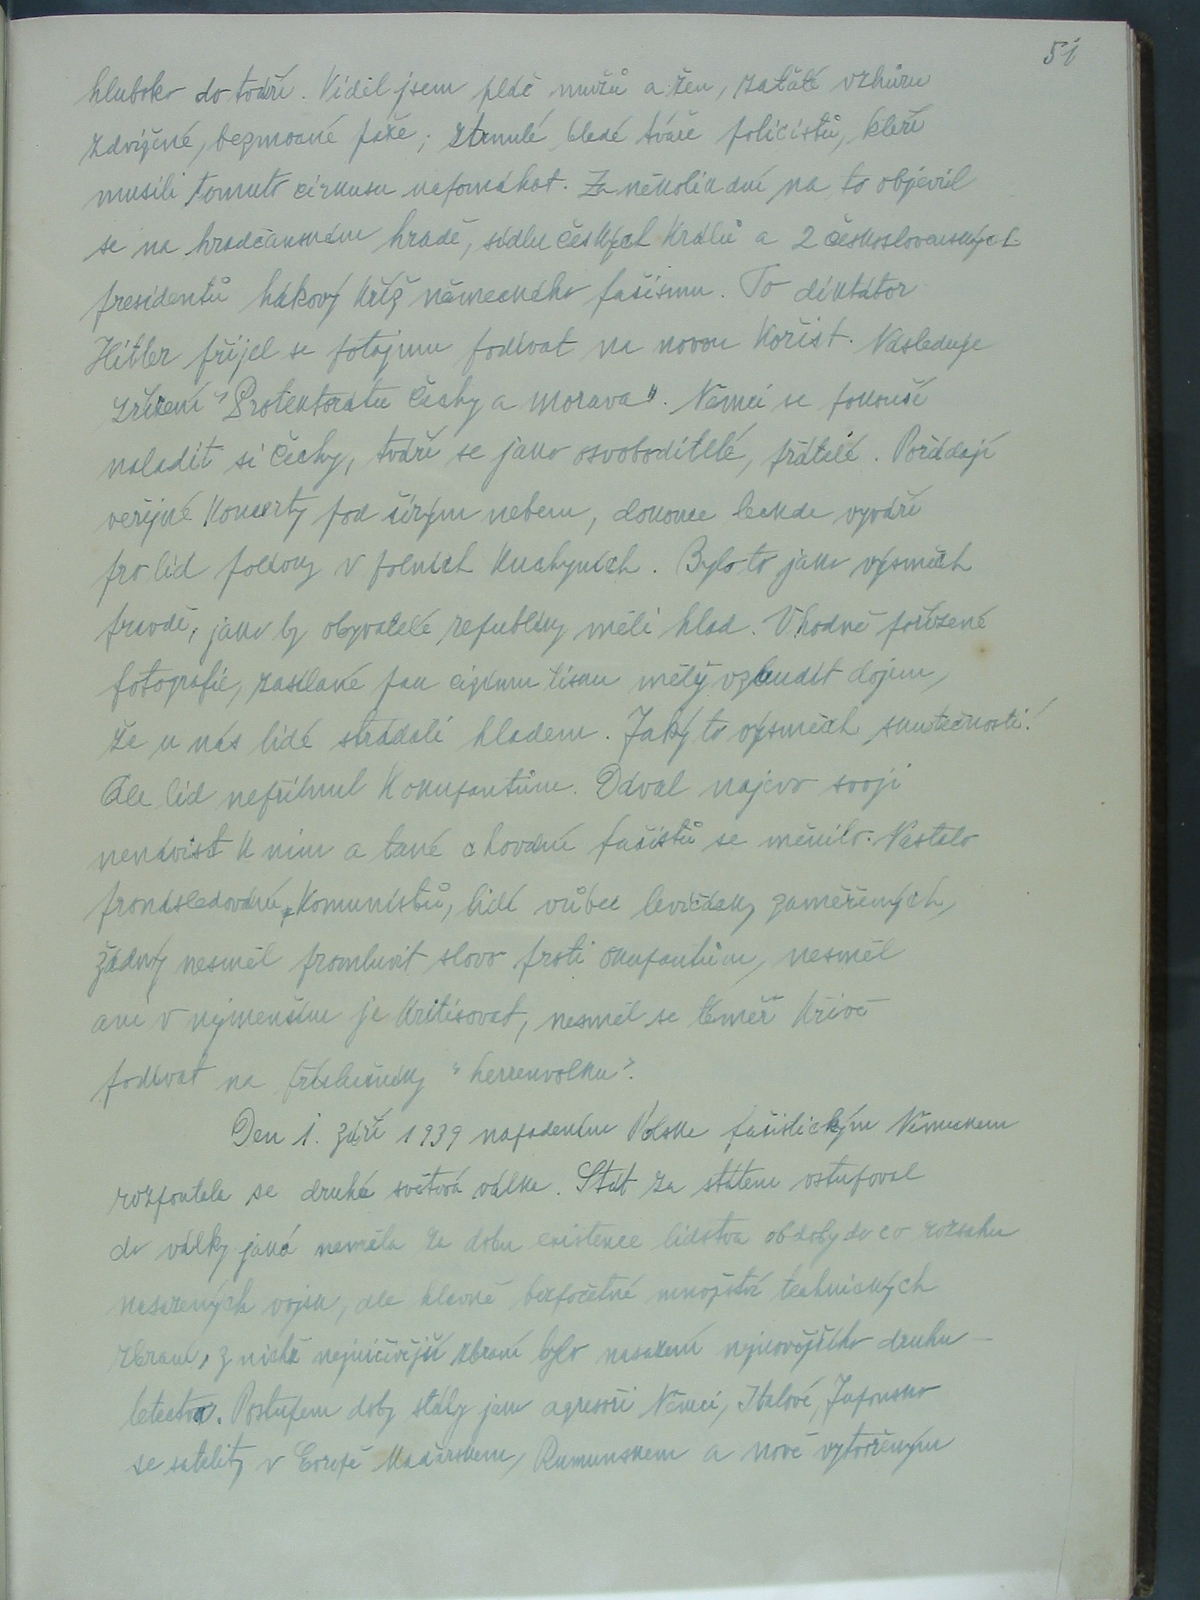 51
hluboko do tváří. Viděl jsem pláč mužů a žen, zaťaté vzhůru
zdvižené, bezmocné pěže; ztrnulé bledé tváře policistů, kteří
musili tomuto cirkusu napomáhat. Za několik dní na to objevil
se na hradčanském hradě, sídlu českých králů a 2 československých
presidentů hákový kříž německého fašismu. To diktátor
Hitler přijel se potajmu podívat na novou kořist. Následuje
zřízení "Protektorátu Čechy a Morava". Němci se pokouší
naladit si Čechy, tváří se jako osvoboditelé, přátelé. Pořádají
veřejné koncerty pod širým nebem, dokonce leckde vyváří
pro lid polévky v polních kuchyních. Bylo to jako výsměch
pravdě, jako by obyvatelé republiky měli hlad. Vhodně pořízené
fotografie, zasílané pak cizímu tisku měly vzbudit dojem,
že u nás lidé strádali hladem. Jaký to výsměch skutečnosti!
Ale lid nepřilnul k okupantům. Dával najevo svoji
nenávist k nim a také chování fašistů se měnilo. Nastalo
pronásledování komunistů, lidí vůbec levičácky zaměřených,
žádný nesměl promluvit slovo proti okupantům, nesměl
ani v nejmenším je kritisovat, nesměl se téměř křivě
podívat na příslušníky "herrenvolku".
Den 1. září 1939 napadením Polska fašistickým Německem
rozpoutala se druhá světová válka. Stát za státem vstupoval
do války jaká neměla za dobu existence lidstva obdoby do co rozsahu
nasazených vojsk, ale hlavně bezpočetné množství technických
zbraní, z nichž nejničivější zbraní bylo nasazení nejnovějšího druhu –
letectva. Postupem doby stály jako agresoři Němci, Italové, Japonsko
se satelity v Evropě Maďarskem, Rumunskem a nově vytvořeným